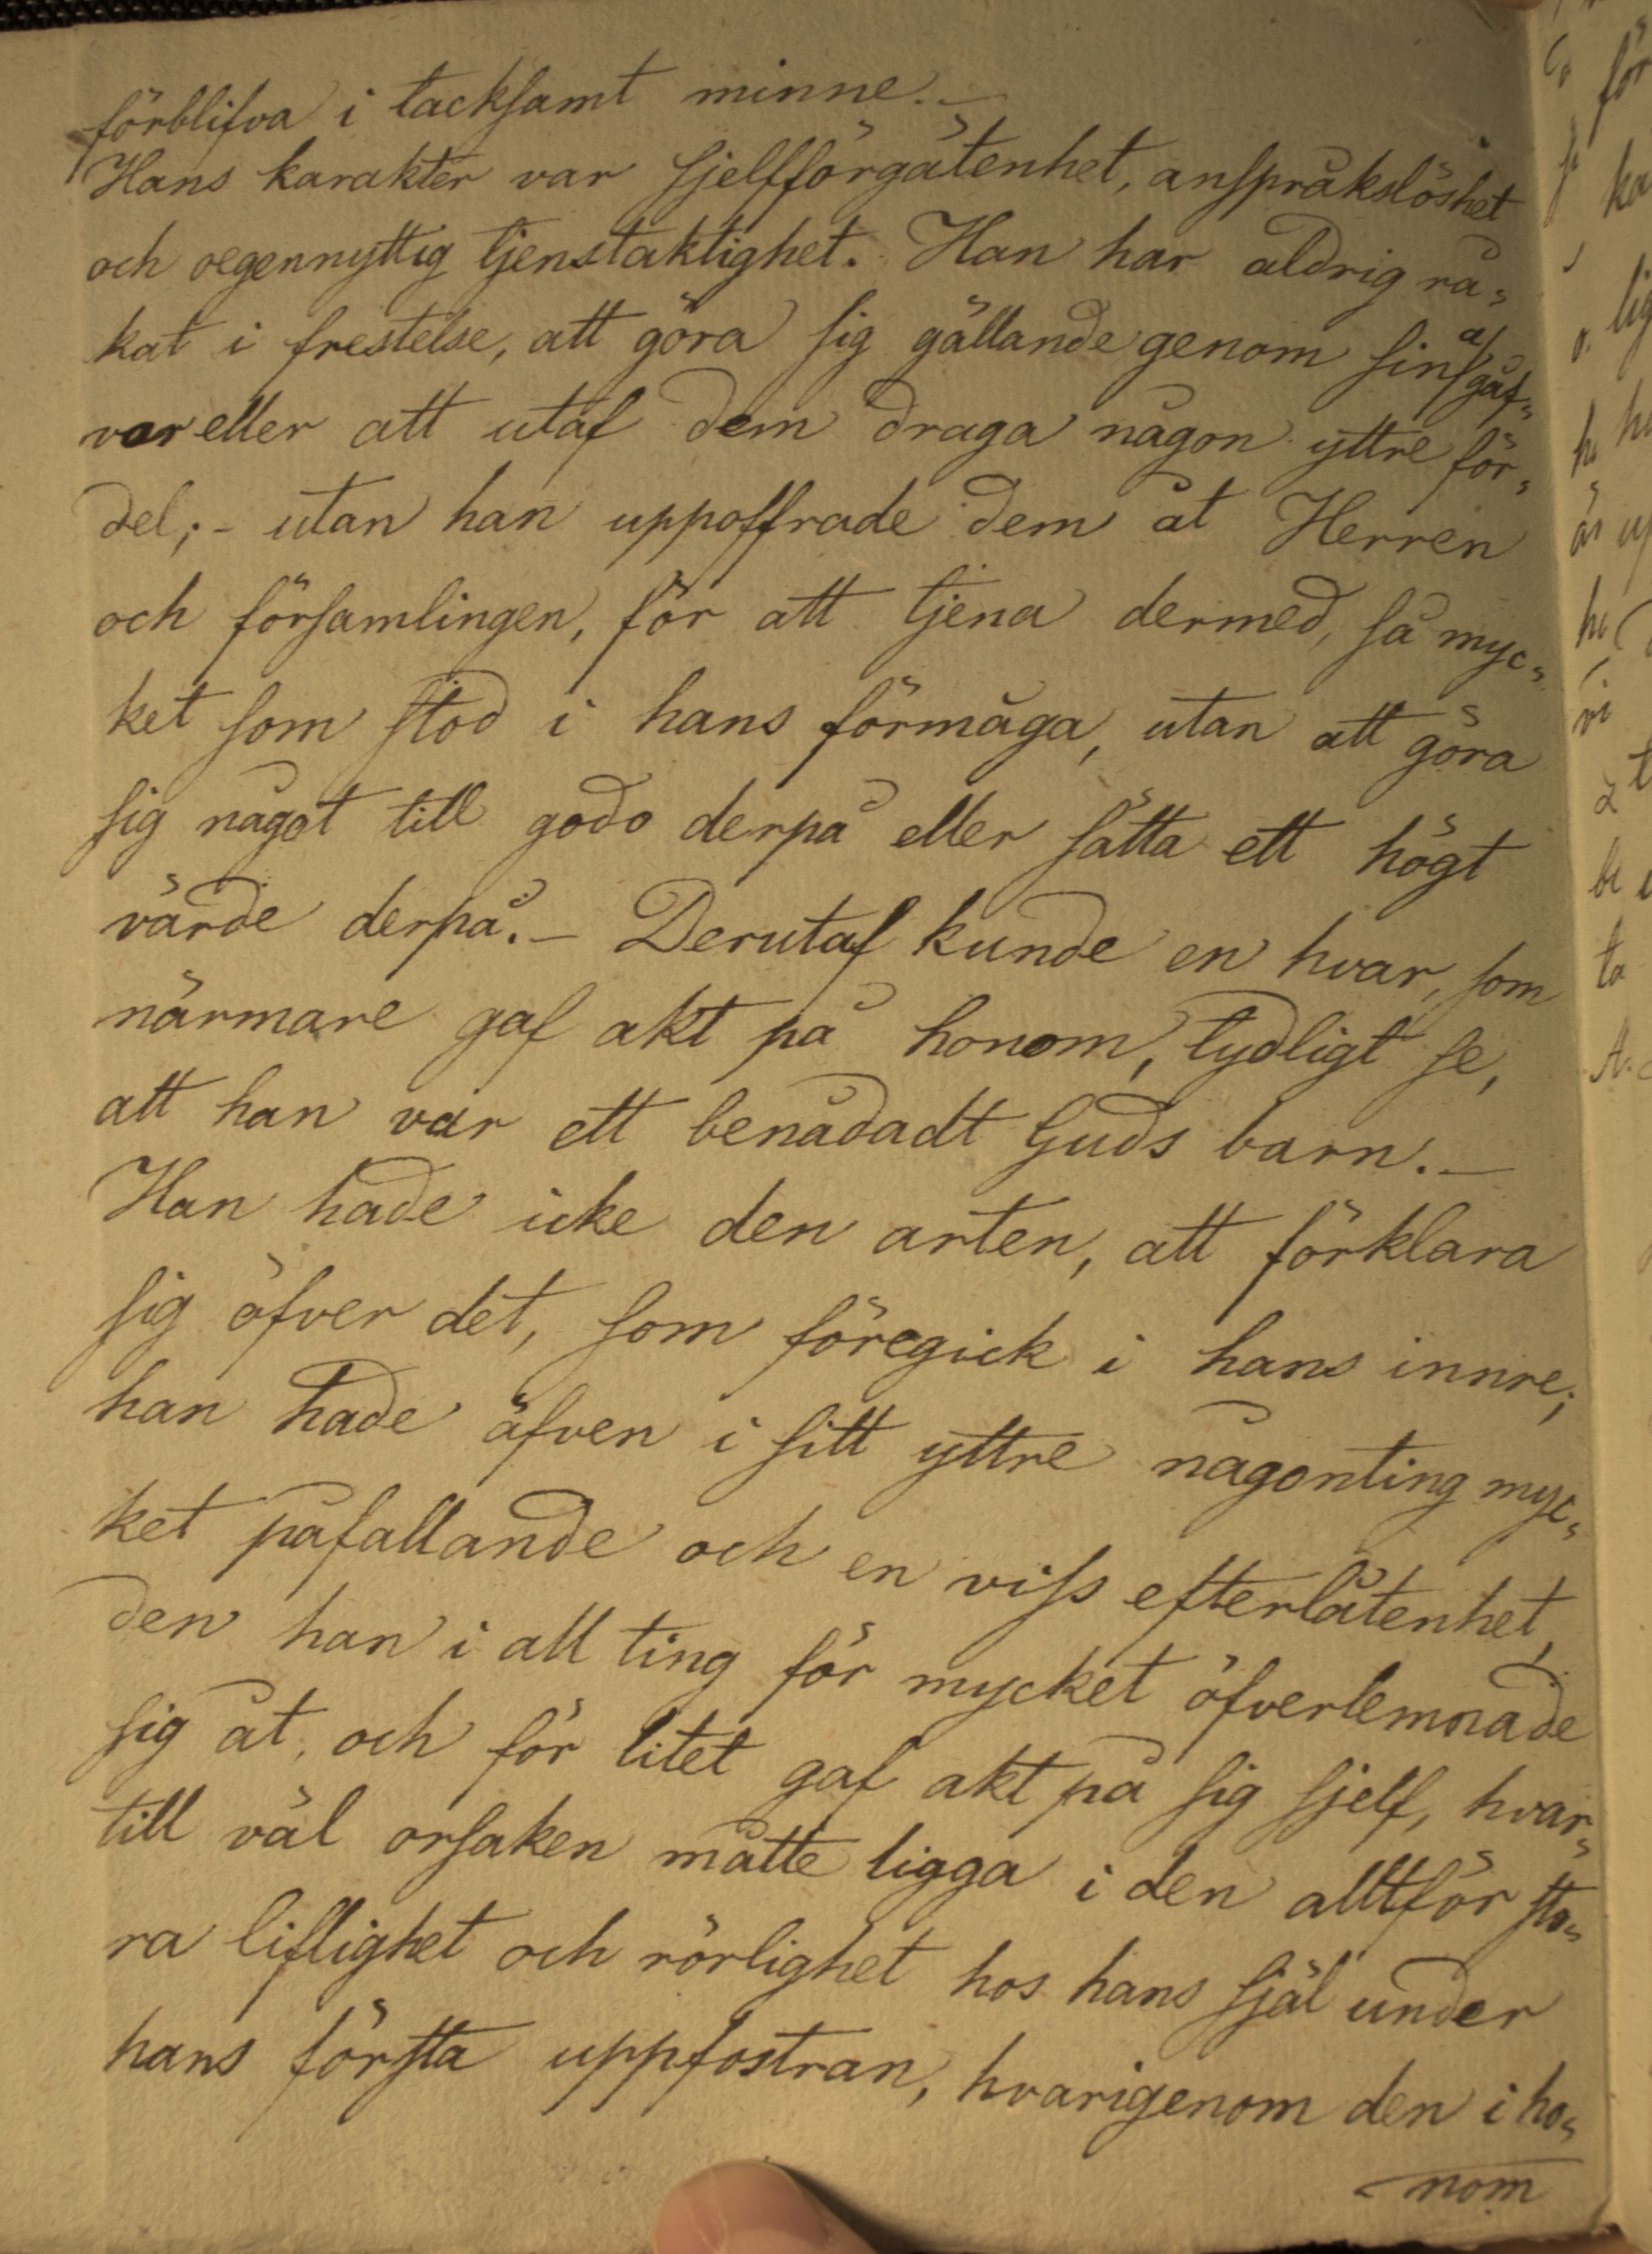 förblifva i tacksamt minne. –
Hans karakter var sjelfförgätenhet, anspråkslöshet
och oegennyttig tjenstaktighet. Han har aldrig rå-
kat i frestelse, att göra sig gällande genom sina gåf-
vor eller att utaf dem draga någon yttre för-
del; – utan han uppoffrade dem åt Herren
och församlingen, för att tjena dermed, så myc-
ket som stod i hans förmåga, utan att göra
sig något till godo derpå eller sätta ett högt
värde derpå. – Derutaf kunde en hvar, som
närmare gaf akt på honom, tydligt se,
att han var ett benådadt Guds barn. –
Han hade icke den arten, att förklara
sig öfver det, som föregick i hans innre;
han hade äfven i sitt yttre någonting myc-
ket påfallande och en viss efterlåtenhet,
den han i all ting för mycket öfverlemnade
sig åt, och för litet gaf akt på sig sjelf, hvar-
till väl orsaken måtte ligga i den alltför sto-
ra liflighet och rörlighet hos hans själ under
hans första uppfostran, hvarigenom den i ho-
nom